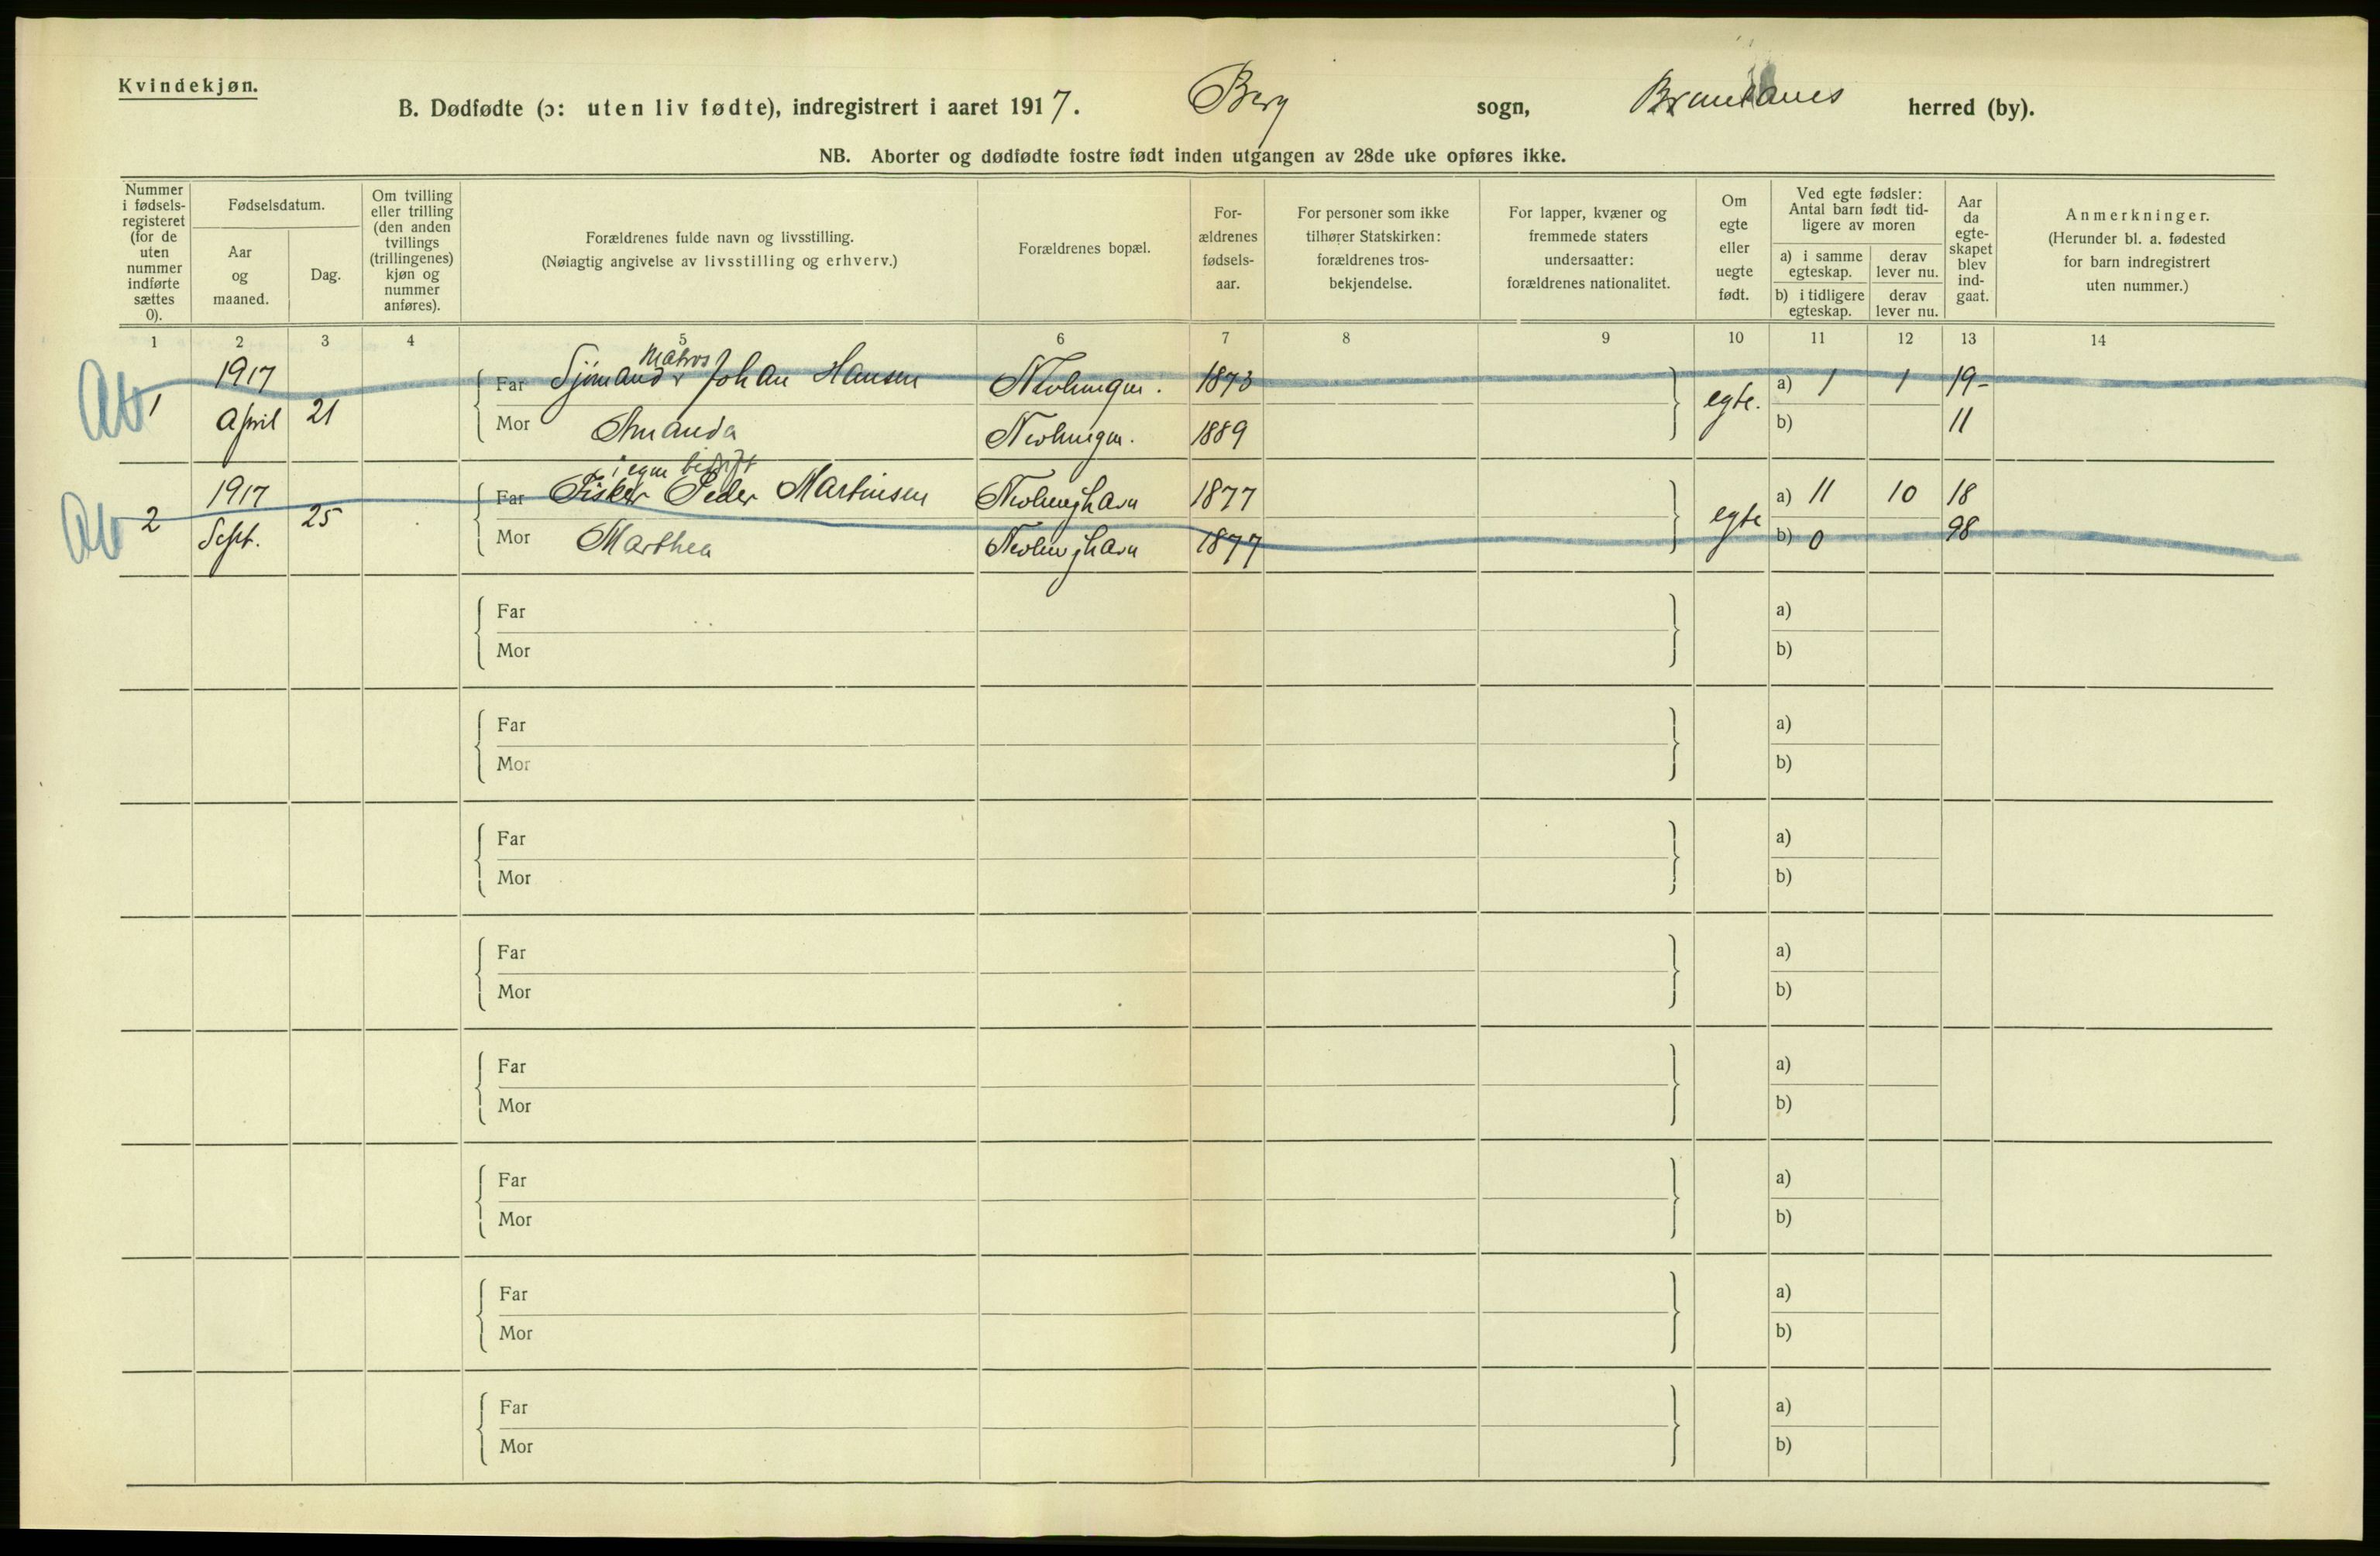 Kvindekjøn.
B. Dødfødte (ɔ: uten liv fødte), indregistrert i aaret 1917. Berg sogn, Brunlanes herred (by).
NB. Aborter og dødfødte fostre født inden utgangen av 28de uke opføres ikke.
Nummer i fødsels-registeret (for de uten nummer indførte sættes 0).
Fødselsdatum.
Aar og maaned.
Dag.
Om tvilling eller trilling (den anden tvillings (trillingenes) kjøn og nummer anføres).
Forældrenes fulde navn og livsstilling.
(Nøiagtig angivelse av livsstilling og erhverv.)
Forældrenes bopæl.
For-ældrenes fødsels-aar.
For personer som ikke tilhører Statskirken: forældrenes tros-bekjendelse.
For lapper, kvæner og fremmede staters undersaatter: forældrenes nationalitet.
Om egte eller uegte født.
Ved egte fødsler: Antal barn født tid-ligere av moren
a) i samme egteskap.
derav lever nu.
b) i tidligere egteskap.
derav lever nu.
Aar da egte-skapet blev ind-gaat.
Anmerkninger.
(Herunder bl. a. fødested for barn indregistrert uten nummer.)
1 2 3 4 5 6 7 8 9 10 11 12 13 14
Matros
1 1917 April 21 Far Sjømand Johan Hansen 1873 egte. a) 1 1 19-
Mor Amanda 1889 b) 11
i egen bedrift
2 1917 Sept. 25 Far Fisker Peder Martinsen Nevlunghavn 1877 egte a) 11 10 18
Mor Marthea Nevlunghavn 1877 b) 0 98
Far a)
Mor b)
Far a)
Mor b)
Far a)
Mor b)
Far a)
Mor b)
Far a)
Mor b)
Far a)
Mor b)
Far a)
Mor b)
Far a)
Mor b)